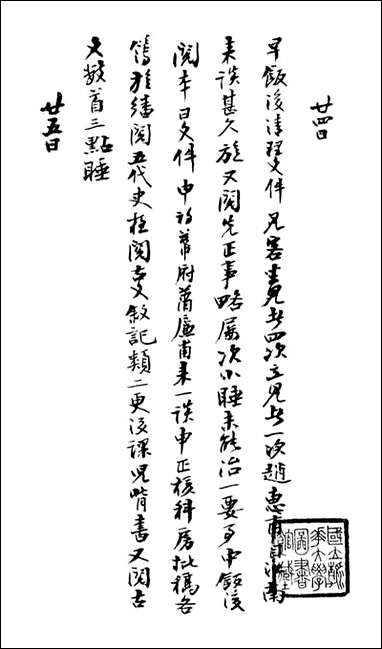 廿四日
早飯後清理文件見客坐見者四次立見者一次趙惠甫自南
來談甚久旋又閱先正事略屢次小睡未能治一要事中飯後
閱本日文件申初幕府蕭廉甫來一談申正核科房批稿各
簿旋繙閱五代史夜閱古文敘記類二更後課兒背書又閱古
文數首三點睡
廿五日
國立
大學
圖書
館藏